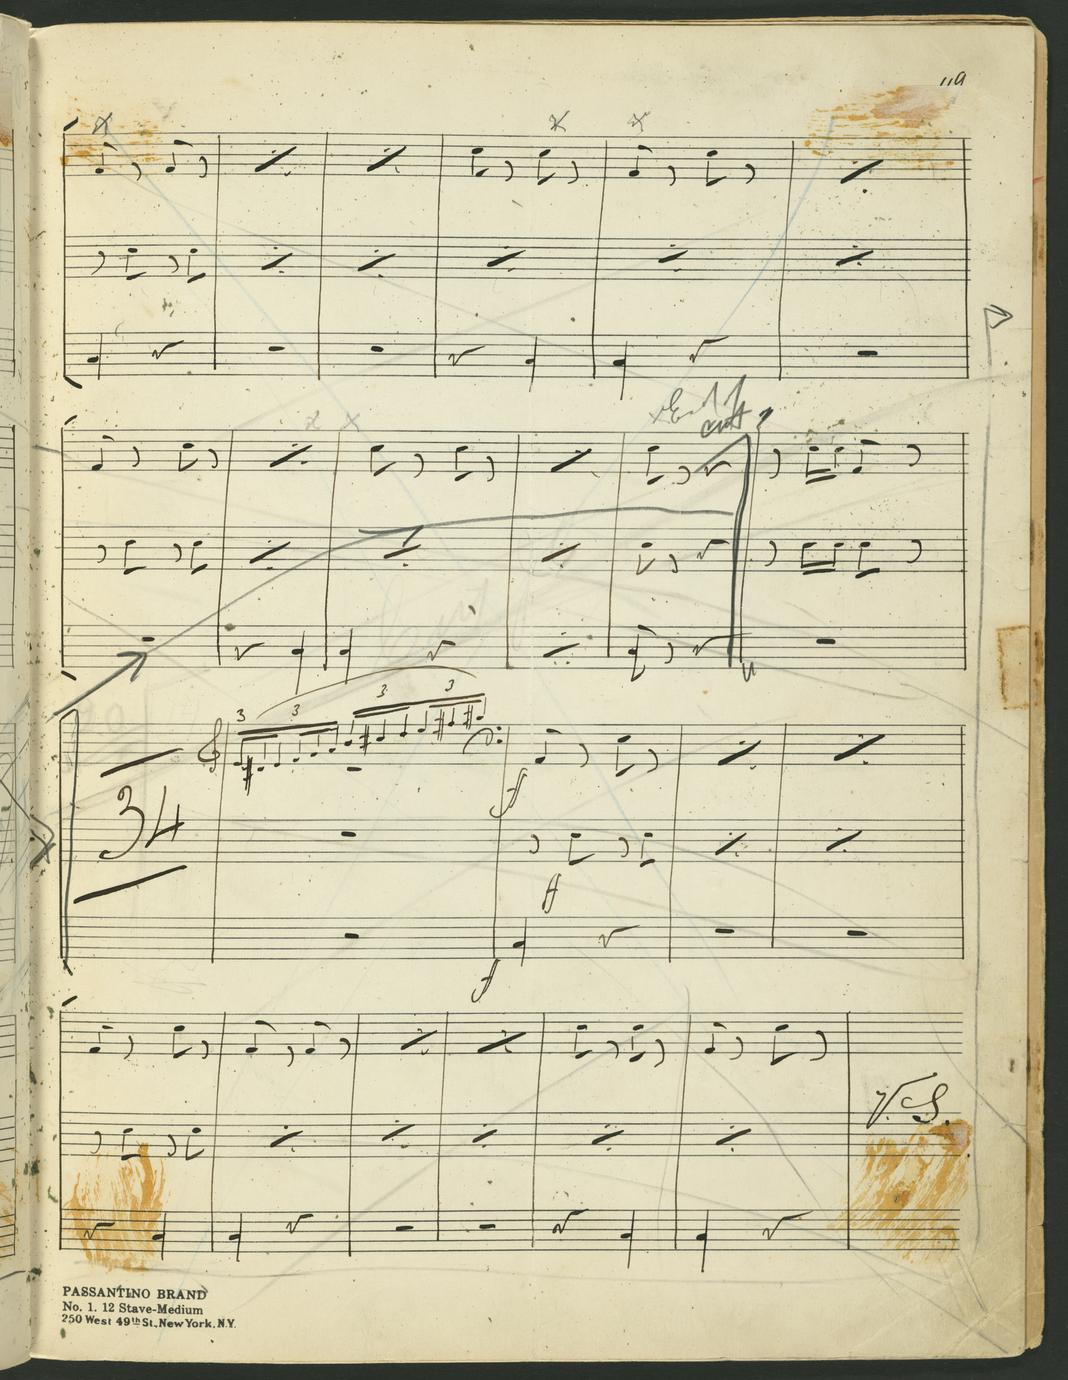 119
End of
cut
3
3
3
3
34
f
f
f
V.S.
PASSANTINO BRAND
No. 1. 12 Stave-Medium
250 West 49th St., New York, N.Y.